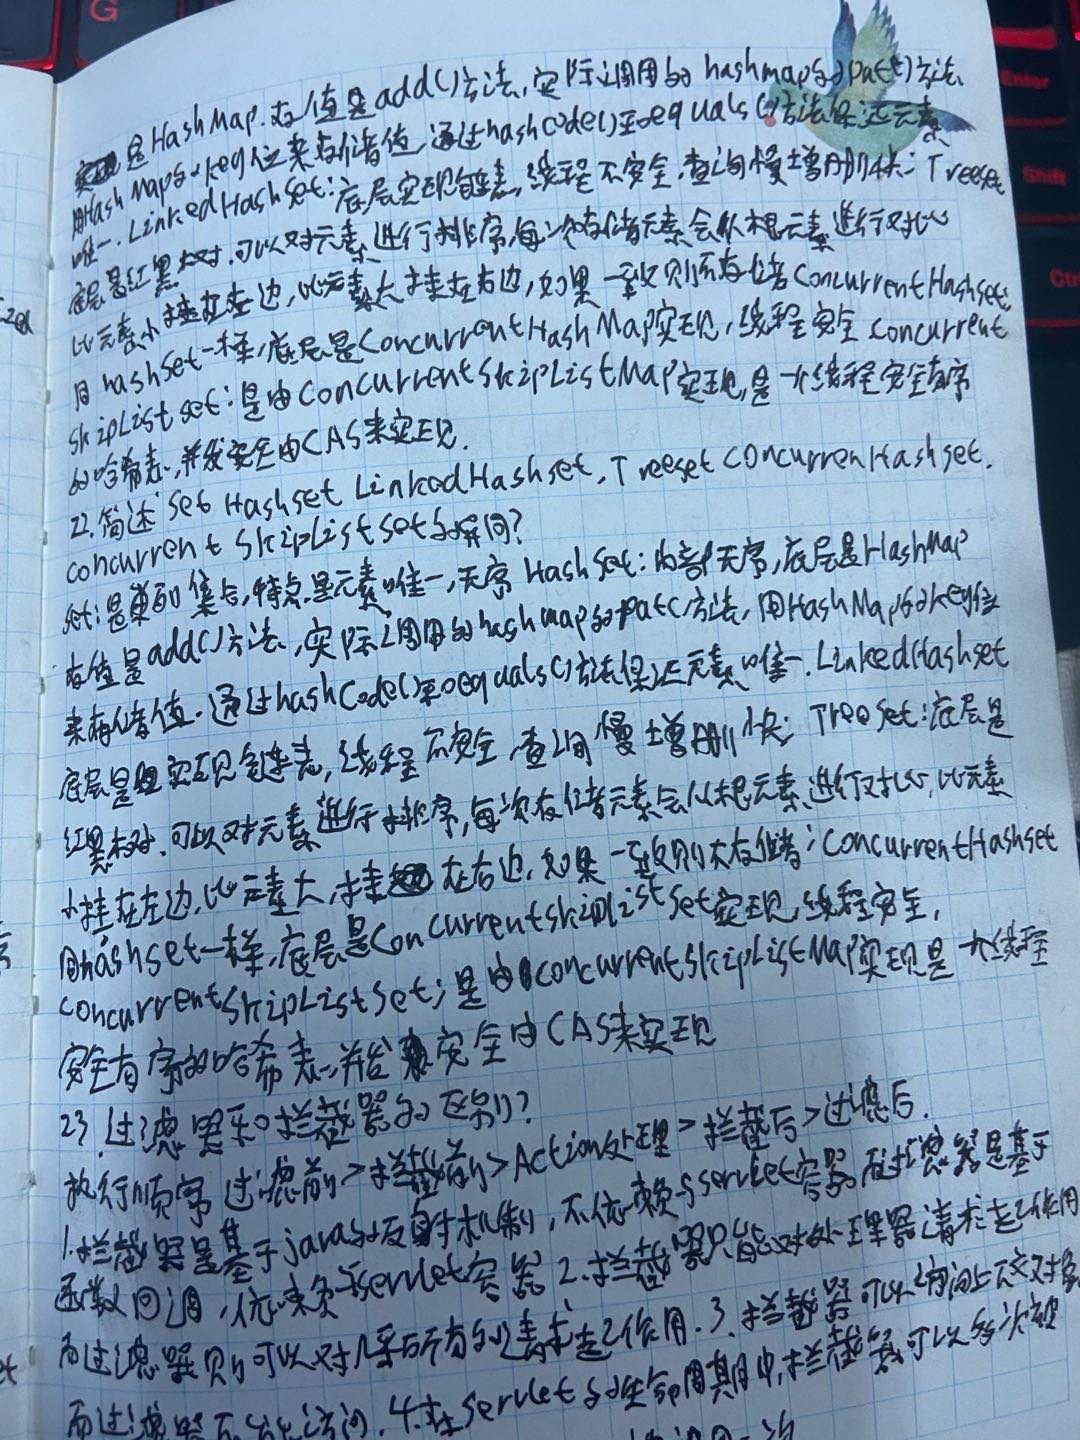 是HashMap.存值是add()方法,实际调用的hashmap的pat()方法
用HashMap的key位来存储值,通过hashCode()和equals()方法保证元素
唯一.LinkedHashSet:底层实现链表,线程不安全,查询慢增删快;Treeset
底层是红黑树.可以对元素进行排序,每次存储元素会从根元素进行对比
比元素小挂在左边,比元素大挂在右边,如果一致则不存储ConcurrentHashset:
同hashset一样,底层是ConcurrentHashMap实现,线程安全concurrent
skipList set:是由ConcurrentSkipListMap实现,是一个线程安全有序
的哈希表,并发安全由CAS来实现.
22.简述set Hashset LinkedHashset,Treeset concurrenHashset.
concurrent skipList set的异同?
set:是单列集合,特点是元素唯一,无序 Hashset:内部无序,底层是HashMap
存值是add()方法,实际调用的hashmap的pat()方法,用HashMap的key位
来存储值.通过hashCode()和equals()方法保证元素唯一.LinkedHashset
底层是实现链表,线程不安全,查询慢增删快;Treeset:底层是
红黑树.可以对元素进行排序,每次存储元素会从根元素进行对比,比元素
小挂在左边,比元素大,挂在右边,如果一致则不存储;ConcurrentHashset
同hashset一样,底层是ConcurrentskipListset实现,线程安全,
concurrentSkipListset;是由concurrentSkipListMap实现是一个线程
安全有序的哈希表,并发安全由CAS来实现
23.过滤器和拦截器的区别?
执行顺序 过滤前>拦截前>Action处理>拦截后>过滤后.
1.拦截器是基于java的反射机制,不依赖与servlet容器,过滤器是基于
函数回调,依赖于servlet容器 2.拦截器只能对处理器请求起作用
而过滤器则可以对几乎所有的请求起作用.3.拦截器可以访问上下文对象
而过滤器不能访问.4.在servlet的生命周期中,拦截器可以多次被